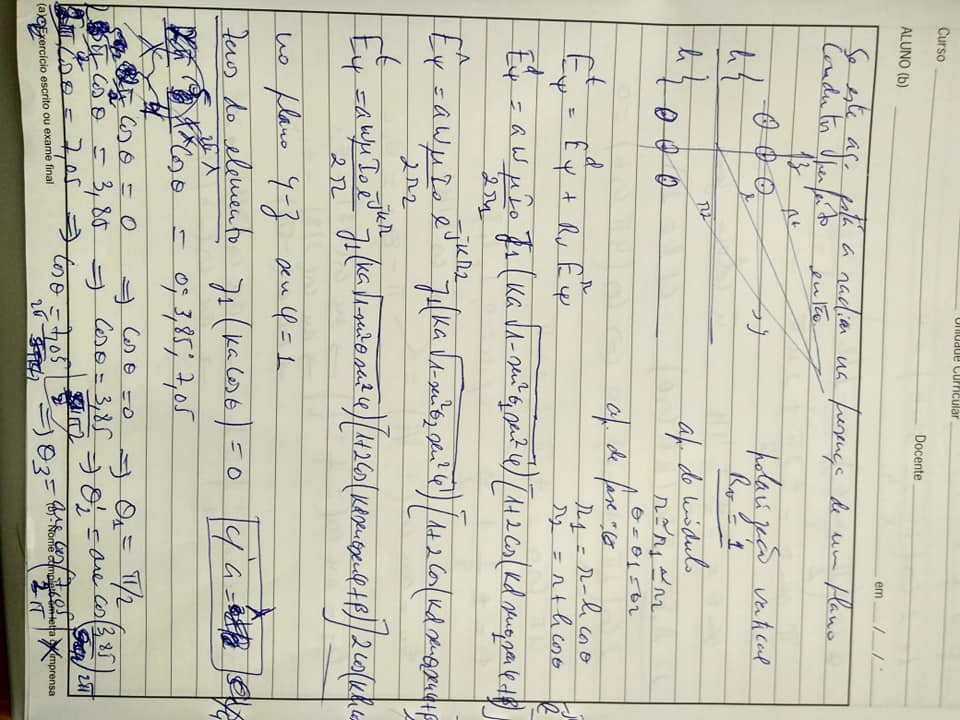 Unidade Curricular
Curso
Docente
ALUNO (b)
em / /
Se este ag. está a radiar na presença de um plano
Condutor perfeito então
z
r1
y
r
h
r2
h
polarização vertical
Rv = 1
ap. de módulo
r ≃ r1 ≃ r2
θ = θ1 = θ2
ap. de fase:
r1 = r - h cosθ
r2 = r + h cosθ
E_ψ^t = E_ψ^d + Rv E_ψ^r
E_ψ^d = a w μ I0 / 2r1 J1 (ka √(1-sen²θ1 sen²φ)) [1+2cos(kd senθ1 senφ+β)]
E_ψ^r = a w μ I0 e^{-jkr2} / 2r2 J1 (ka √(1-sen²θ2 sen²φ)) [1+2cos(kd senθ2 senφ+β
E_ψ^t = a w μ I0 e^{-jkr} / 2r J1 (ka √(1-sen²θ sen²φ)) [1+2cos(kd senθ senφ+β)] 2cos(kh cos
no plano y-z sen φ = 1
Zeros do elemento J1 (ka cosθ) = 0
cosθ = 0; 3,85; 7,05
cosθ = 0 ⇒ cosθ = 0 ⇒ θ1 = π/2
cosθ = 3,85 ⇒ cosθ = 3,85 ⇒ θ2' = arc cos(3,85 / 2π
cosθ = 7,05 ⇒ cosθ = 7,05 / 2π ⇒ θ3 = arc cos(7,05 / 2π)
(a) Exercício escrito ou exame final
(b) - Nome completo em letra de imprensa